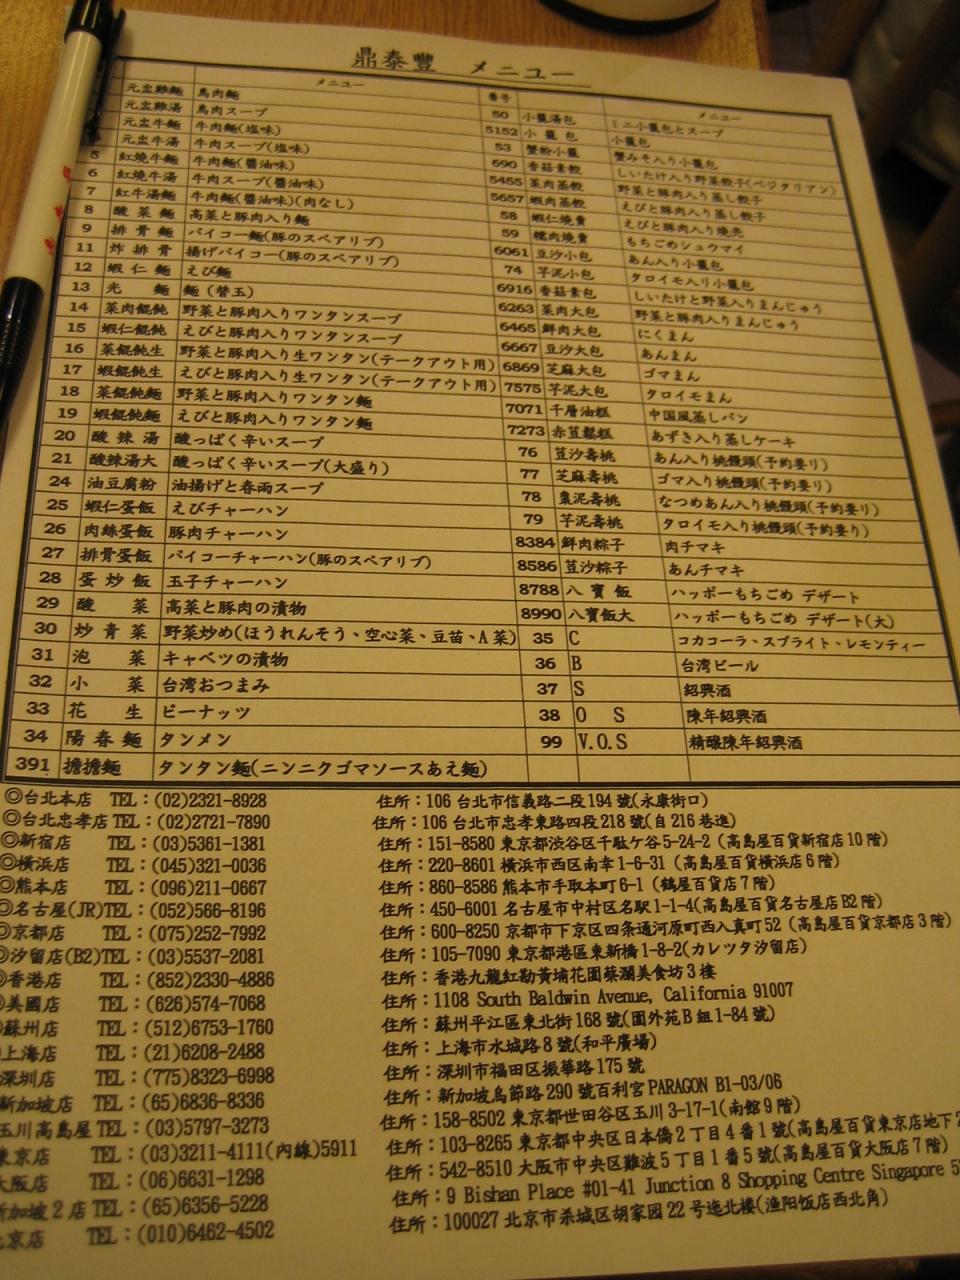 鼎泰豐 メニュー
メニュー 番号 メニュー
元盅雞麵 鳥肉麵 50 小籠湯包 ミニ小籠包とスープ
元盅雞湯 鳥肉スープ 5152 小籠包 小籠包
元盅牛麵 牛肉麵(塩味) 53 蟹粉小籠 蟹みそ入り小籠包
元盅牛湯 牛肉スープ(塩味) 690 香菇素餃 しいたけ入り野菜餃子(ベジタリアン)
5 紅燒牛麵 牛肉麵(醬油味) 5455 菜肉蒸餃 野菜と豚肉入り蒸し餃子
6 紅燒牛湯 牛肉スープ(醬油味) 5657 蝦肉蒸餃 えびと豚肉入り蒸し餃子
7 紅牛湯麵 牛肉麵(醬油味)(肉なし) 58 蝦仁燒賣 えびと豚肉入り焼売
8 酸菜麵 高菜と豚肉入り麵 59 糯肉燒賣 もちごめシュウマイ
9 排骨麵 パイコー麵(豚のスペアリブ) 6061 豆沙小包 あん入り小籠包
11 炸排骨 揚げパイコー(豚のスペアリブ) 74 芋泥小包 タロイモ入り小籠包
12 蝦仁麵 えび麵 6916 香菇素包 しいたけと野菜入りまんじゅう
13 光麵 麵(替玉) 6263 菜肉大包 野菜と豚肉入りまんじゅう
14 菜肉餛飩 野菜と豚肉入りワンタンスープ 6465 鮮肉大包 にくまん
15 蝦仁餛飩 えびと豚肉入りワンタンスープ 6667 豆沙大包 あんまん
16 菜餛飩生 野菜と豚肉入り生ワンタン(テークアウト用) 6869 芝麻大包 ゴマまん
17 蝦餛飩生 えびと豚肉入り生ワンタン(テークアウト用) 7575 芋泥大包 タロイモまん
18 菜餛飩麵 野菜と豚肉入りワンタン麵 7071 千層油糕 中国風蒸しパン
19 蝦餛飩麵 えびと豚肉入りワンタン麵 7273 赤荳鬆糕 あずき入り蒸しケーキ
20 酸辣湯 酸っぱく辛いスープ 76 荳沙壽桃 あん入り桃饅頭(予約要り)
21 酸辣湯大 酸っぱく辛いスープ(大盛り) 77 芝麻壽桃 ゴマ入り桃饅頭(予約要り)
24 油豆腐粉 油揚げと春雨スープ 78 棗泥壽桃 なつめあん入り桃饅頭(予約要り)
25 蝦仁蛋飯 えびチャーハン 79 芋泥壽桃 タロイモ入り桃饅頭(予約要り)
26 肉絲蛋飯 豚肉チャーハン 8384 鮮肉粽子 肉チマキ
27 排骨蛋飯 パイコーチャーハン(豚のスペアリブ) 8586 荳沙粽子 あんチマキ
28 蛋炒飯 玉子チャーハン 8788 八寶飯 ハッポーもちごめ デザート
29 酸菜 高菜と豚肉の漬物 8990 八寶飯大 ハッポーもちごめ デザート(大)
30 炒青菜 野菜炒め(ほうれんそう、空心菜、豆苗、A菜) 35 C コカコーラ、スプライト、レモンティー
31 泡菜 キャベツの漬物 36 B 台湾ビール
32 小菜 台湾おつまみ 37 S 紹興酒
33 花生 ピーナッツ 38 O S 陳年紹興酒
34 陽春麵 タンメン 99 V.O.S 精釀陳年紹興酒
391 擔擔麵 タンタン麵(ニンニクゴマソースあえ麵)
◎台北本店 TEL：(02)2321-8928 住所：106 台北市信義路二段194號(永康街口)
◎台北忠孝店 TEL：(02)2721-7890 住所：106 台北市忠孝東路四段218號(自216巷進)
◎新宿店 TEL：(03)5361-1381 住所：151-8580 東京都渋谷区千駄ケ谷5-24-2 (高島屋百貨新宿店10階)
◎横浜店 TEL：(045)321-0036 住所：220-8601 横浜市西区南幸1-6-31 (高島屋百貨横浜店6階)
◎熊本店 TEL：(096)211-0667 住所：860-8586 熊本市手取本町6-1 (鶴屋百貨店7階)
◎名古屋(JR)TEL：(052)566-8196 住所：450-6001 名古屋市中村区名駅1-1-4(高島屋百貨名古屋店B2階)
◎京都店 TEL：(075)252-7992 住所：600-8250 京都市下京区四条通河原町西入真町52 (高島屋百貨京都店3階)
◎汐留店(B2)TEL：(03)5537-2081 住所：105-7090 東京都港區東新橋1-8-2(カレツタ汐留店)
◎香港店 TEL：(852)2330-4886 住所：香港九龍紅磡黃埔花園蔡瀾美食坊3樓
◎美國店 TEL：(626)574-7068 住所：1108 South Baldwin Avenue, California 91007
蘇州店 TEL：(512)6753-1760 住所：蘇州平江區東北街168號(園外苑B組1-84號)
上海店 TEL：(21)6208-2488 住所：上海市水城路8號(和平廣場)
深圳店 TEL：(775)8323-6998 住所：深圳市福田区振華路175號
新加坡店 TEL：(65)6836-8336 住所：新加坡烏節路290號百利宮PARAGON B1-03/06
玉川高島屋 TEL：(03)5797-3273 住所：158-8502 東京都世田谷区玉川3-17-1(南館9階)
東京店 TEL：(03)3211-4111(內線)5911 住所：103-8265 東京都中央区日本僑2丁目4番1號(高島屋百貨東京店地下2
大阪店 TEL：(06)6631-1298 住所：542-8510 大阪市中央区難波5丁目1番5號(高島屋百貨大阪店7階)
新加坡2店 TEL：(65)6356-5228 住所：9 Bishan Place #01-41 Junction 8 Shopping Centre Singapore 5
北京店 TEL：(010)6462-4502 住所：100027 北京市杀城区胡家园22号迤北楼(渔阳饭店西北角)